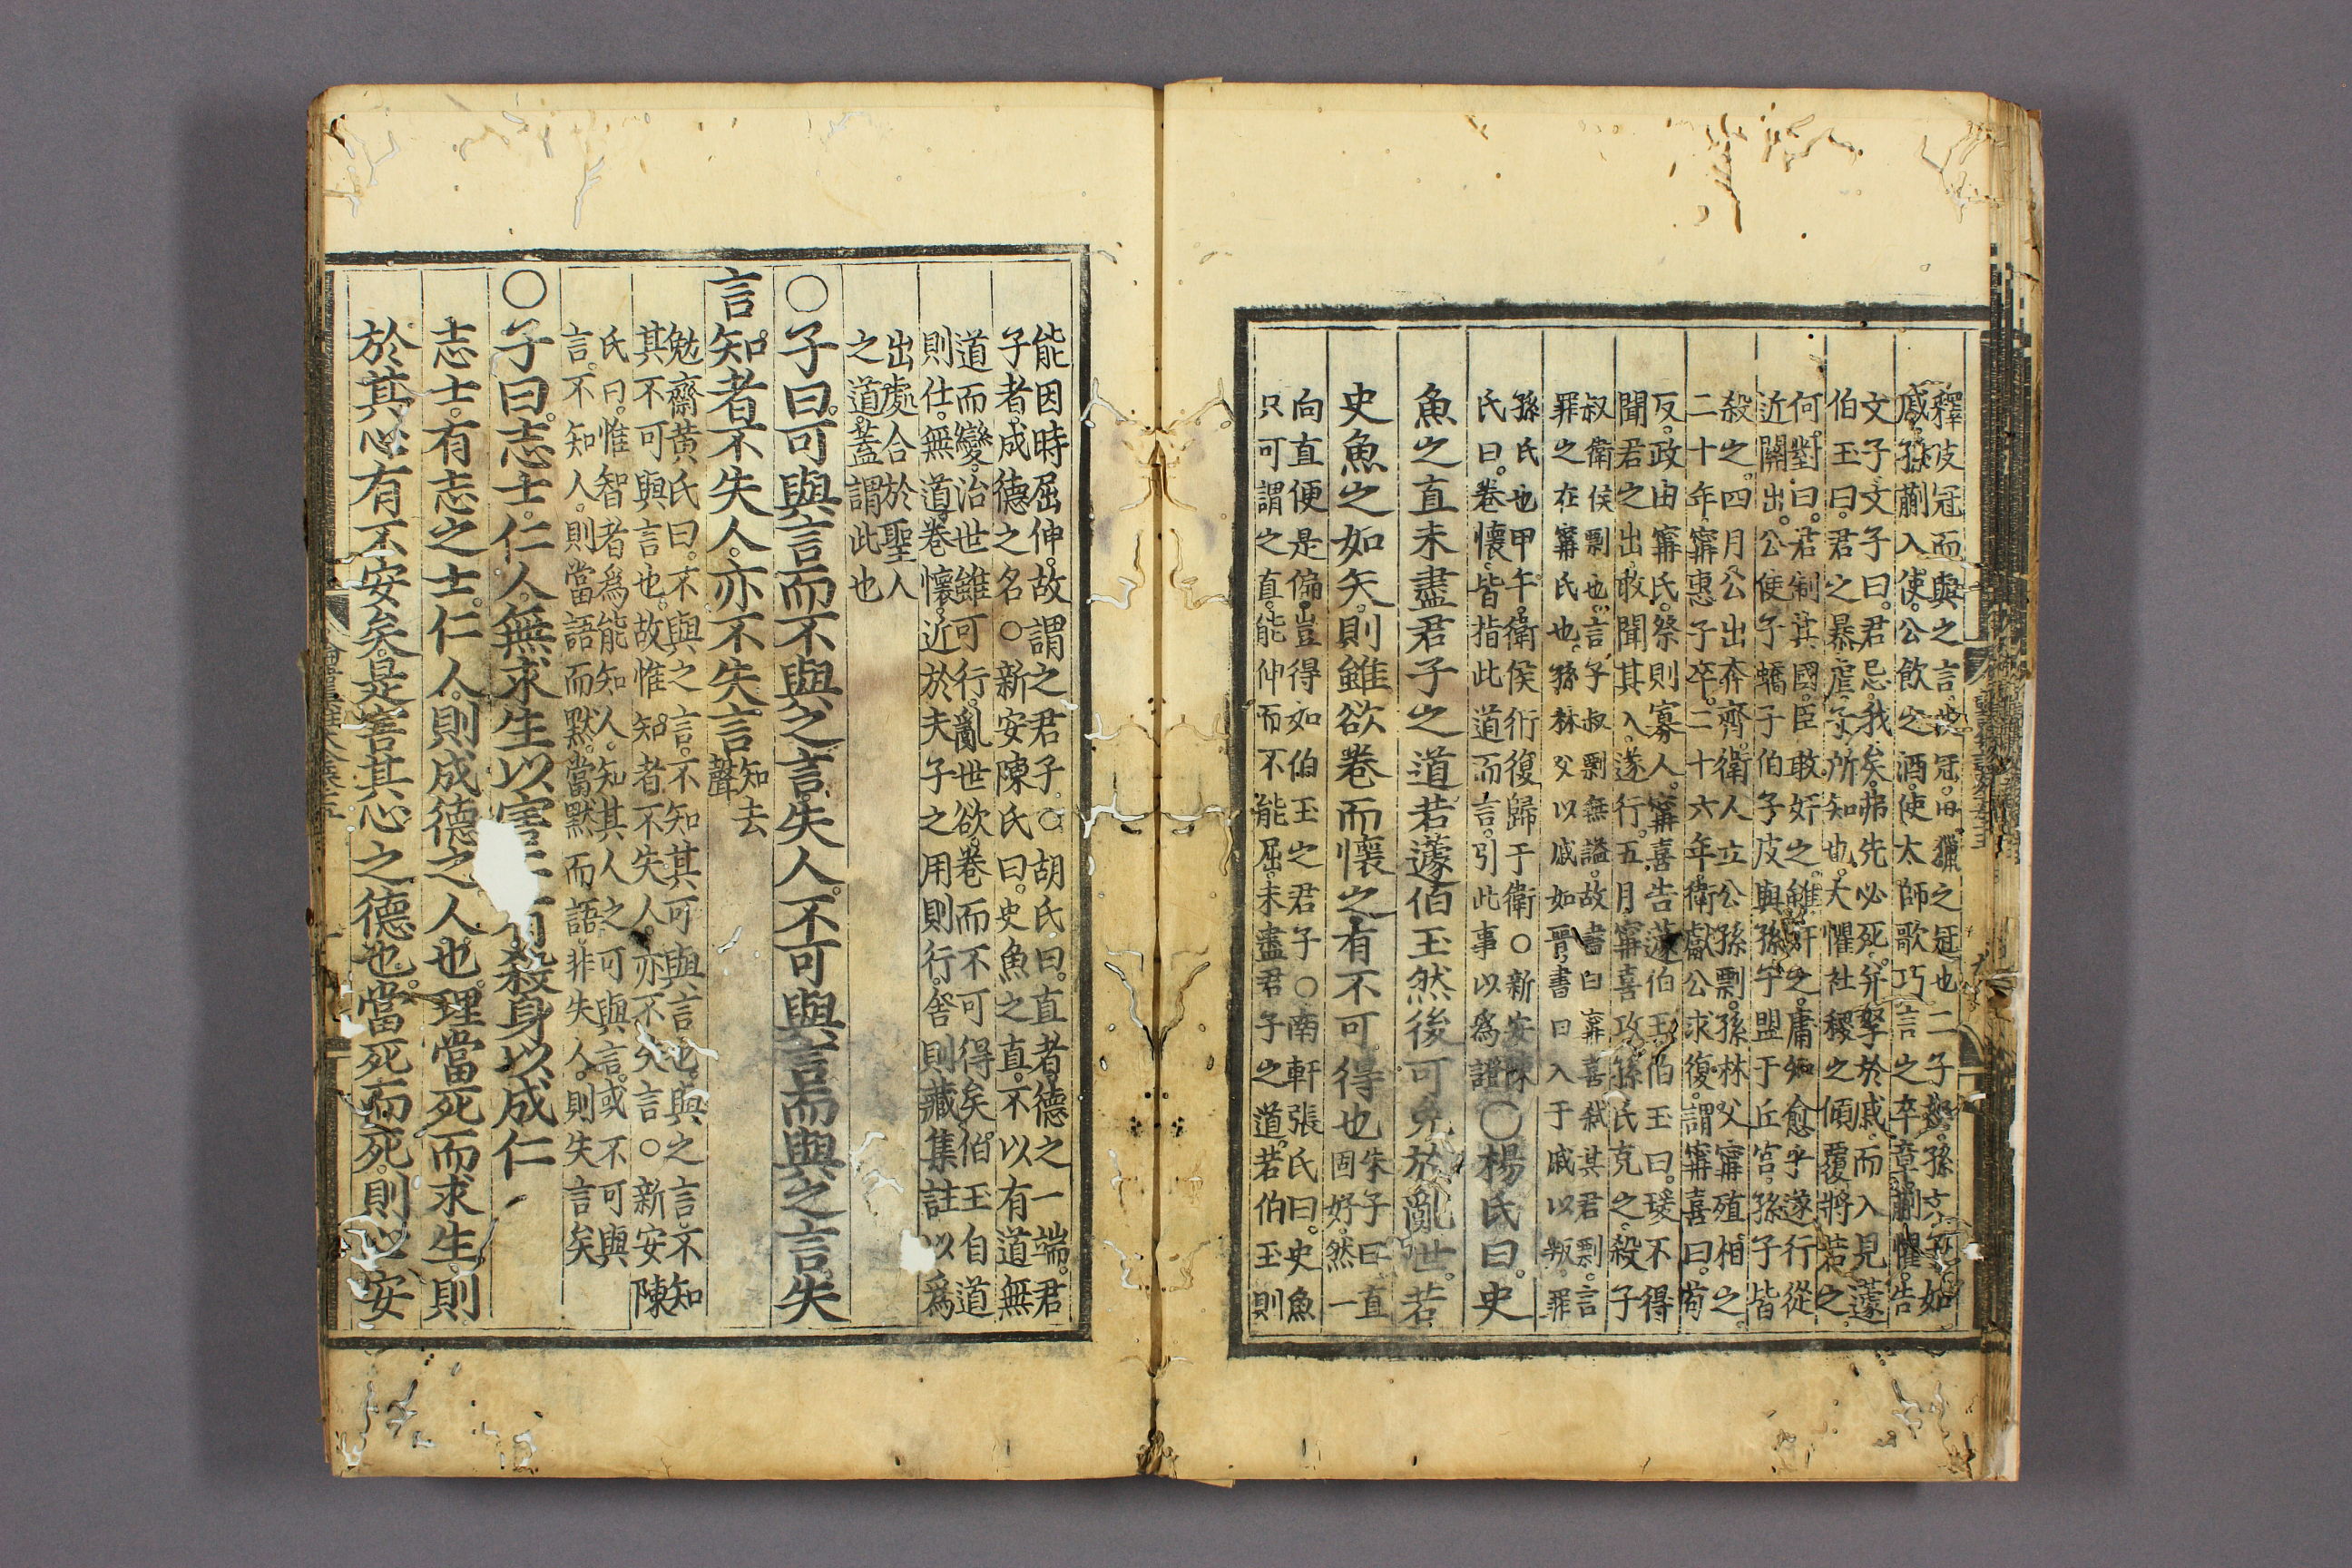 釋皮冠而與之言冠田獵之冠也二子怒孫文子如
戚孫蒯入使公飲之酒使太師歌巧言之卒章蒯懼告
文子文子曰君忌我矣弗先必死并孥於戚而入見蘧
伯玉曰君之暴虐子所知也大懼社稷之傾覆將若之
何對曰君制其國臣敢奸之雖奸之庸知愈乎遂行從
近關出公使子蟜子伯子皮與孫子盟于丘宮孫子皆
殺之四月公出奔齊衛人立公孫剽孫林父甯殖相之
二十年甯惠子卒二十六年衛獻公求復謂甯喜曰苟
反政由甯氏祭則寡人甯喜告蘧伯玉伯玉曰瑗不得
聞君之出敢聞其入遂行五月甯喜攻孫氏克之殺子
叔衛侯剽也言子叔剽無諡故書曰甯喜弒其君剽言
罪之在甯氏也孫林父以戚如晉書曰入于戚以叛罪
孫氏也甲午衛侯衎復歸于衛○新安陳
氏曰卷懷皆指此道而言引此事以爲證
○楊氏曰史
魚之直未盡君子之道若蘧伯玉然後可免於亂世若
史魚之如矢則雖欲卷而懷之有不可得也
朱子曰直
固好然一
向直便是偏豈得如伯玉之君子○南軒張氏曰史魚
只可謂之直能伸而不能屈未盡君子之道若伯玉則
能因時屈伸故謂之君子○胡氏曰直者德之一端君
子者成德之名○新安陳氏曰史魚之直不以有道無
道而變治世雖可行亂世欲卷而不可得矣伯玉自道
則仕無道卷懷近於夫子之用則行舍則藏集註以爲
出處合於聖人
之道蓋謂此也
○子曰可與言而不與之言失人不可與言而與之言失
言知者不失人亦不失言
知去
聲
勉齋黄氏曰不與之言不知其可與言也與之言不知
其不可與言也故惟知者不失人亦不失言○新安陳
氏曰惟智者爲能知人知其人之可與言或不可與
言不知人則當語而默當默而語非失人則失言矣
○子曰志士仁人無求生以害仁有殺身以成仁
志士有志之士仁人則成德之人也理當死而求生則
於其心有不安矣是害其心之德也當死而死則心安